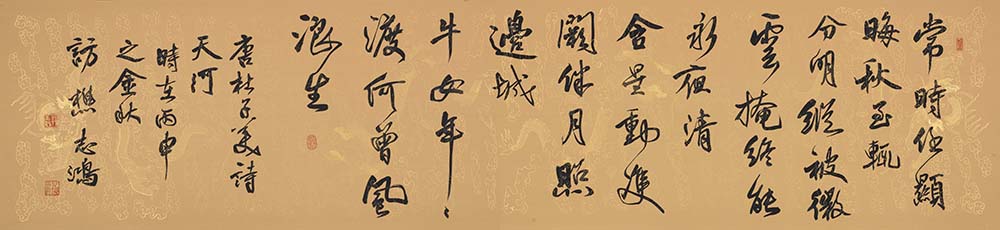 常時任顯
晦秋至輒
分明縱被微
雲掩終能
永夜清
含星動雙
闕伴月照
邊城
牛女年〻
渡何曾風
浪生
唐杜子美詩
天河
時在丙申
之金秋
訪樵志鴻